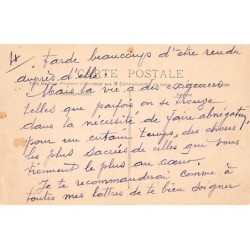 4
tarde beaucoup d'être rendu
auprès d'elle.
CARTE POSTALE
Mais la vie a des exigences
telles que parfois on se trouve
dans la nécessité de faire abnégation
pour un certain temps, des choses
les plus sacrées de celles qui vous
tiennent le plus au cœur.
Je te recommanderai comme à
toutes mes lettres de te bien soigner